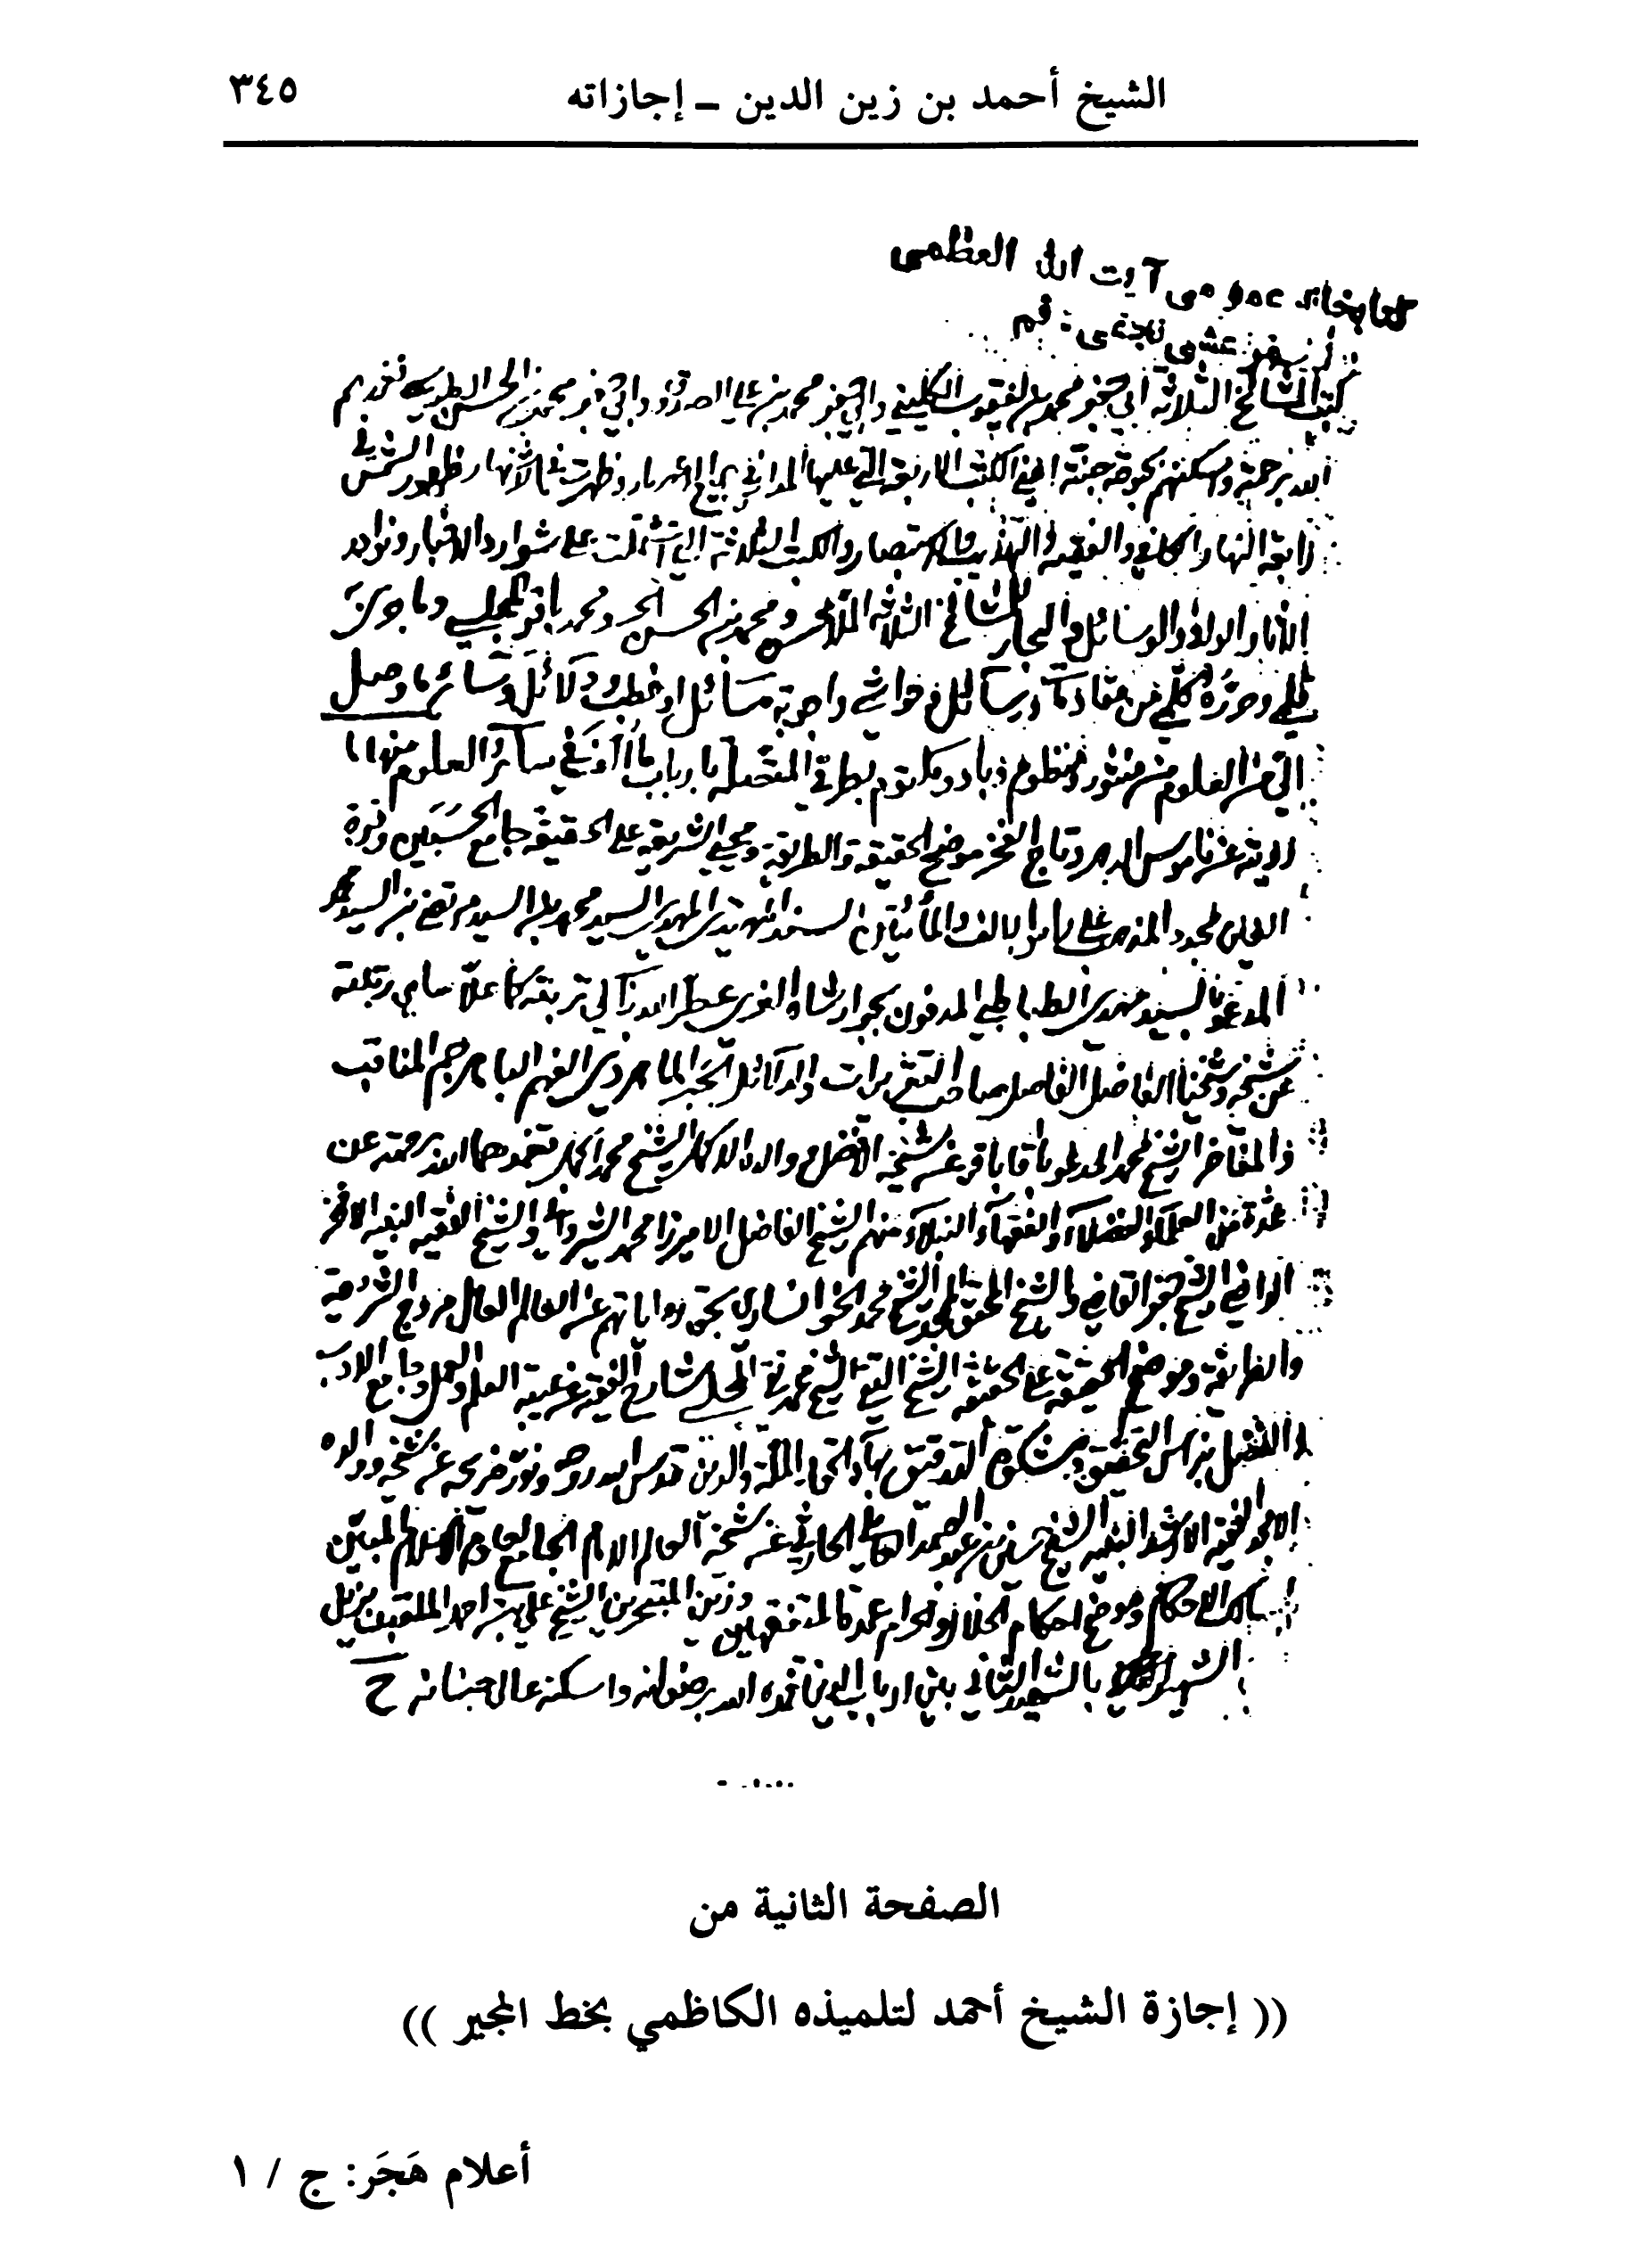 الشيخ أحمد بن زين الدين ـ إجازاته ٣٤٥
كتابخانه عمومى آيت الله العظمى
مرعشى نجفى - قم
كتب المشائخ الثلاثة أبي جعفر محمد بن يعقوب الكليني وابي جعفر محمد بن علي الصدوق وابي جعفر محمد بن الحسن الطوسي تغمدهم
الله برحمته واسكنهم بحبوحة جنته اعني الكتب الاربعة التي عليها المدار في جميع الاعصار وظهرت في الاقطار ظهور الشمس في
رابعة النهار الكافي والفقيه والتهذيب والاستبصار والكتب الثلاثة التي اشتملت على شوارد الاخبار ونوادر
الآثار الوافي والوسائل والبحار للمشائخ الثلاثة الملا محسن ومحمد بن الحسن الحر ومحمد باقر المجلسي وما جرى به
قلمي وحرره كلمي من رسائل وحواشي واجوبة مسائل او خطب ودلائل وسائر ما وصل
الي من العلوم من منثور ومنظوم وباد ومكتوم بطرقي المتصلة باربابها في سائر العلوم منها ما
ارويه عن ناموس الدهر وتاج الفخر موضح الحقيقة والطريقة ومحيي الشريعة على الحقيقة جامع الحسبين وقرة
العين المجدد للمذهب على راس الالف والمأتين السند المهتدي السيد محمد بن السيد مرتضى بن السيد محمد
المدعو بالسيد مهدي الطباطبائي المدفون بجوار شاه الغري عطر الله زاكي تربته كما علا سامي رتبته
عن شيخه وشيخنا الفاضل الفاصل صاحب التقريرات والدلائل الحبر الماهر ذي الفهم الباهر جم المناقب
والمفاخر الشيخ محمد المدعو بآقا باقر عن شيخه الافضل والده الاكمل الشيخ محمد اكمل تغمدهما الله برحمته عن
عدة من العلماء والفضلاء والفقهاء والنبلاء منهم الشيخ الفاضل الاميرزا محمد الشيرواني والشيخ الفقيه النبيه الافخر
الشيخ جعفر القاضي والشيخ المحقق الشيخ محمد الخوانساري بحق رواياتهم عن العالم العامل مروج الشريعة
والطريقة وموضح الحقيقة على الحقيقة الشيخ التقي الشيخ محمد تقي المجلسي شارح الفقيه عن عيبة العلم والعمل وجامع الادب
والفضل نبراس التحقيق ومشكوة التدقيق بهاء الملة والدين قدس الله روحه ونور ضريحه عن شيخه ووالده
الفقيه الارشد النبيه الشيخ حسين بن عبد الصمد العاملي الحارثي عن شيخه العالم الامام الجامع المبين
مسالك الاحكام وموضح احكام الحلال والحرام عمدة المتفقهين وزين المتبحرين الشيخ علي بن احمد الملقب بزين
الشهير بالشهيد الثاني بين ارباب الدين تغمده الله برضوانه واسكنه عالي جنانه ح
الصفحة الثانية من
(( إجازة الشيخ أحمد لتلميذه الكاظمي بخط المجير ))
أعلام هَجَر: ج / ١